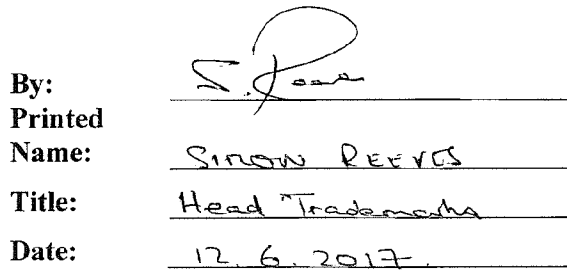 By: S. Reeves
Printed
Name: SIMON REEVES
Title: Head Trademarks
Date: 12.6.2017.